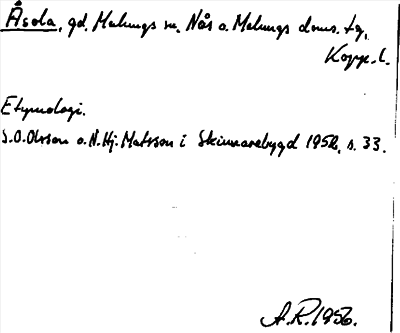 Åsola, gd. Malungs sn. Nås o. Malungs doms. tg,
Kopp. l.
Etymologi.
S.O.Olsson o. N.Hj. Matsson i Skinnarebygd 1952, s. 33.
A.R. 1956.